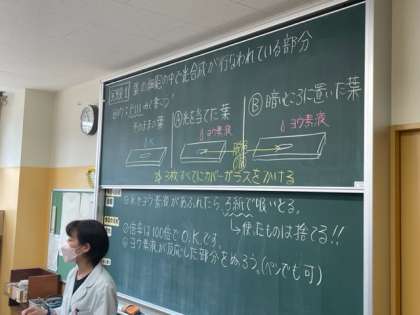 実験1 葉の細胞の中で光合成が行なわれている部分
そのままの葉
Ⓐ光を当てた葉
Ⓑ暗いところに置いた葉
ヨウ素液
ヨウ素液
3枚すべてにカバーガラスをかける
①水やヨウ素液があふれたら、ろ紙で吸いとる。
↳使ったものは捨てる!!
②倍率は100倍でO.K.です。
③ヨウ素液が反応した部分をぬろう。(ペンでも可)